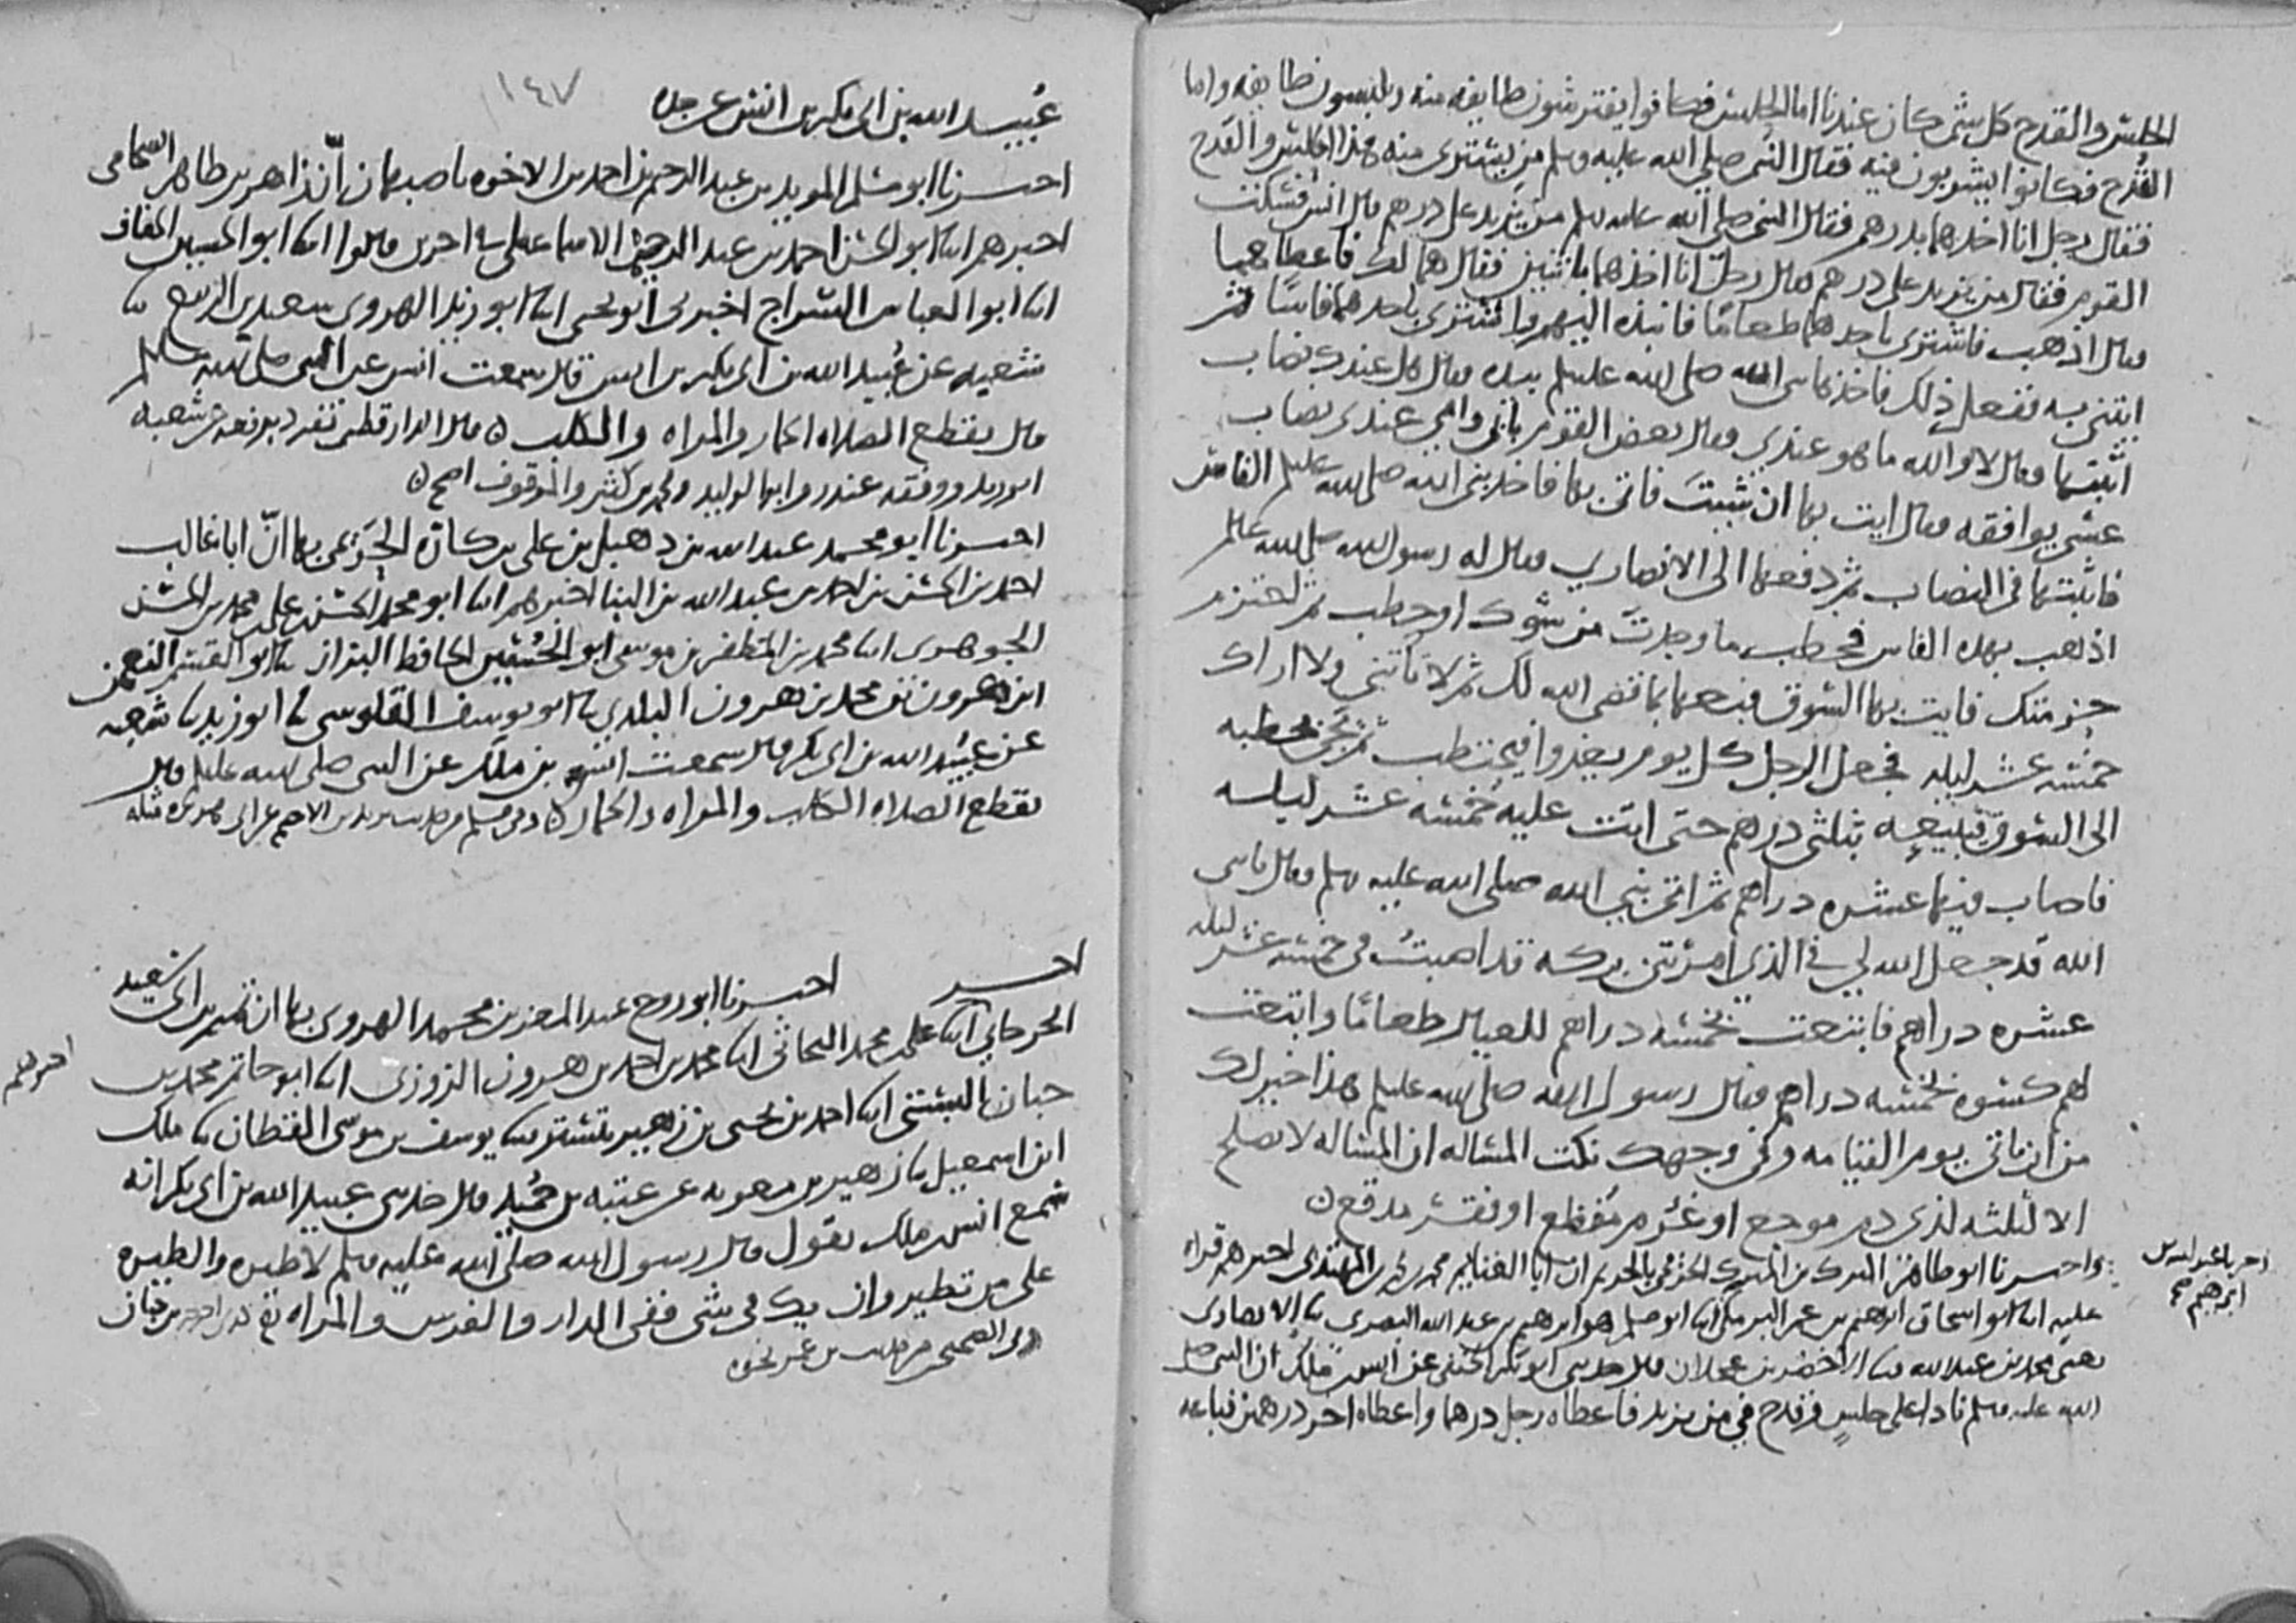 الحلس والقدح كل شي كان عندنا اما الحلس فكانوا يفترشون طايفه منه ويلبسون طايفه واما
القدح فكانوا يشربون فيه فقال النبي صلى الله عليه وسلم من يشتري منه هذا الحلس والقدح
فقال رجل انا اخذهما بدرهم فقال النبي صلى الله عليه وسلم من يزيد على درهم قال انس فسكت
القوم فقال من يزيد على درهم فقال رجل انا اخذهما باثنين فقال هما لك فاعطاهما
وقال اذهب فاشتري باحدهما طعاما فانبذه اليهم واشتري باحدهما فاسا ثم
ايتني به ففعل ذلك فاخذها نبي الله صلى الله عليه وسلم بيده وقال هل عندك نصاب
اثبتها وقال لا والله ما هو عندي وقال بعض القوم بابي وامي عندي نصاب
عسى يوافقه وقال ايت بها ان شيت فاتى بها فاخذ نبي الله صلى الله عليه وسلم الفاس
فاثبتها في النصاب ثم دفعها الى الانصاري وقال له رسول الله صلى الله عليه وسلم
اذهب بهذه الفاس فحطب ما وجدت من شوك او حطب ثم احتزم
حزمتك فايت بها السوق فبعها بما قضى الله لك ثم لا تاتني ولا اراك
خمسه عشر ليله فجعل الرجل كل يوم يغدوا فيحتطب ثم يجي بحطبه
الى السوق فيبيعه بثلثي درهم حتى اتت عليه خمسه عشر ليله
فاصاب فيها عشره دراهم ثم اتى نبي الله صلى الله عليه وسلم وقال يا نبي
الله قد جعل الله لي في الذي امرتني بركه قد اصبت في خمسه عشر ليله
عشره دراهم فابتعت بخمسه دراهم للعيال طعاما وابتعت
لهم كسوه بخمسه دراهم وقال رسول الله صلى الله عليه وسلم هذا خير لك
من ان تاتي يوم القيامه وفي وجهك نكت المساله ان المساله لا تصلح
الا لثلثه لذي دم موجع او غرم مفظع او فقر مدقع
واخبرنا ابو طاهر المبرك بن المبرك الحريمي بالحريم ان ابا الغنايم محمد بن محمد بن المهتدي اخبرهم قراه
عليه ابنا ابو اسحاق ابرهيم بن عمر البرمكي ابنا ابو مسلم هو ابرهيم بن عبد الله البصري ثنا الانصاري
يعني محمد بن عبد الله ثنا الاخضر بن عجلان قال حدثني ابو بكر الحنفي عن انس بن ملك ان النبي صلى
الله عليه وسلم نادا على حلس وقدح في من يزيد فاعطاه رجل درهما واعطاه اخر درهمين فباعه
ابرهيم
١٤٧
عبيد الله بن ابي بكر بن انس عن جده
اخبرنا ابو مسلم المويد بن عبد الرحيم بن احمد بن الاخوه باصبهان ان زاهر بن طاهر الشحامي
اخبرهم ابنا ابو الحسن احمد بن عبد الرحيم الاسماعيلي في اخرين قالوا ابنا ابو الحسين الخفاف
ابنا ابو العباس السراج اخبرني ابو يحيى ابنا ابو زيد الهروي سعيد بن الربيع ثنا
شعبه عن عبيد الله بن ابي بكر بن انس قال سمعت انس عن النبي صلى الله عليه وسلم
قال يقطع الصلاه الحمار والمراه والكلب قال الدارقطني تفرد برفعه عن شعبه
ابو زيد ووقفه غندر وابو الوليد ومحمد بن كثير والموقوف اصح
اخبرنا ابو محمد عبد الله بن دهبل بن علي بن كاره الحريمي بها ان ابا غالب
احمد بن الحسن بن احمد بن عبد الله بن البنا اخبرهم ابنا ابو محمد الحسن بن علي بن محمد بن الحسن
الجوهري ابنا محمد بن المظفر بن موسى ابو الحسين الحافظ البزاز ثنا ابو القسم النعمن
ابن هرون بن محمد بن هرون البلدي ثنا ابو يوسف القلوسي ثنا ابو زيد ثنا شعبه
عن عبيد الله بن ابي بكر قال سمعت انس بن ملك عن النبي صلى الله عليه وسلم قال
يقطع الصلاه الكلب والمراه والحمار وفي مسلم من حديث يزيد بن الاصم عن ابي هريره مثله
اخبرنا ابو روح عبد المعز بن محمد الهروي بها ان تميم بن ابي سعيد
الجرجاني ابنا علي بن محمد البحاثي ابنا محمد بن احمد بن هرون الزوزني ابنا ابو حاتم محمد بن
اخبرهم
حبان البستي ابنا احمد بن يحيى بن زهير بتستر ثنا يوسف بن موسى القطان ثنا ملك
ابن اسمعيل ثنا زهير بن معويه عن عتبه بن حميد قال حدثني عبيد الله بن ابي بكر انه
سمع انس بن ملك يقول قال رسول الله صلى الله عليه وسلم لا طيره والطيره
على من تطير وان يك في شي ففي الدار والفرس والمراه
في الصحيح من حديث بن عمر نحوه